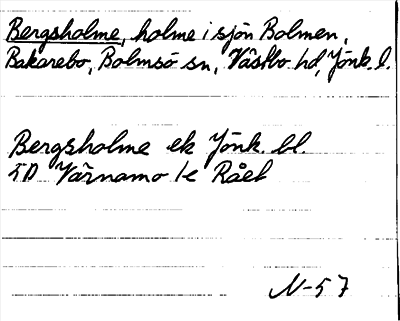 Bergsholme, holme i sjön Bolmen,
Bakarebo, Bolmsö sn, Västbo hd, Jönk. l.
Bergsholme ek Jönk. bl.
5D Värnamo 1e Råeb
N-57